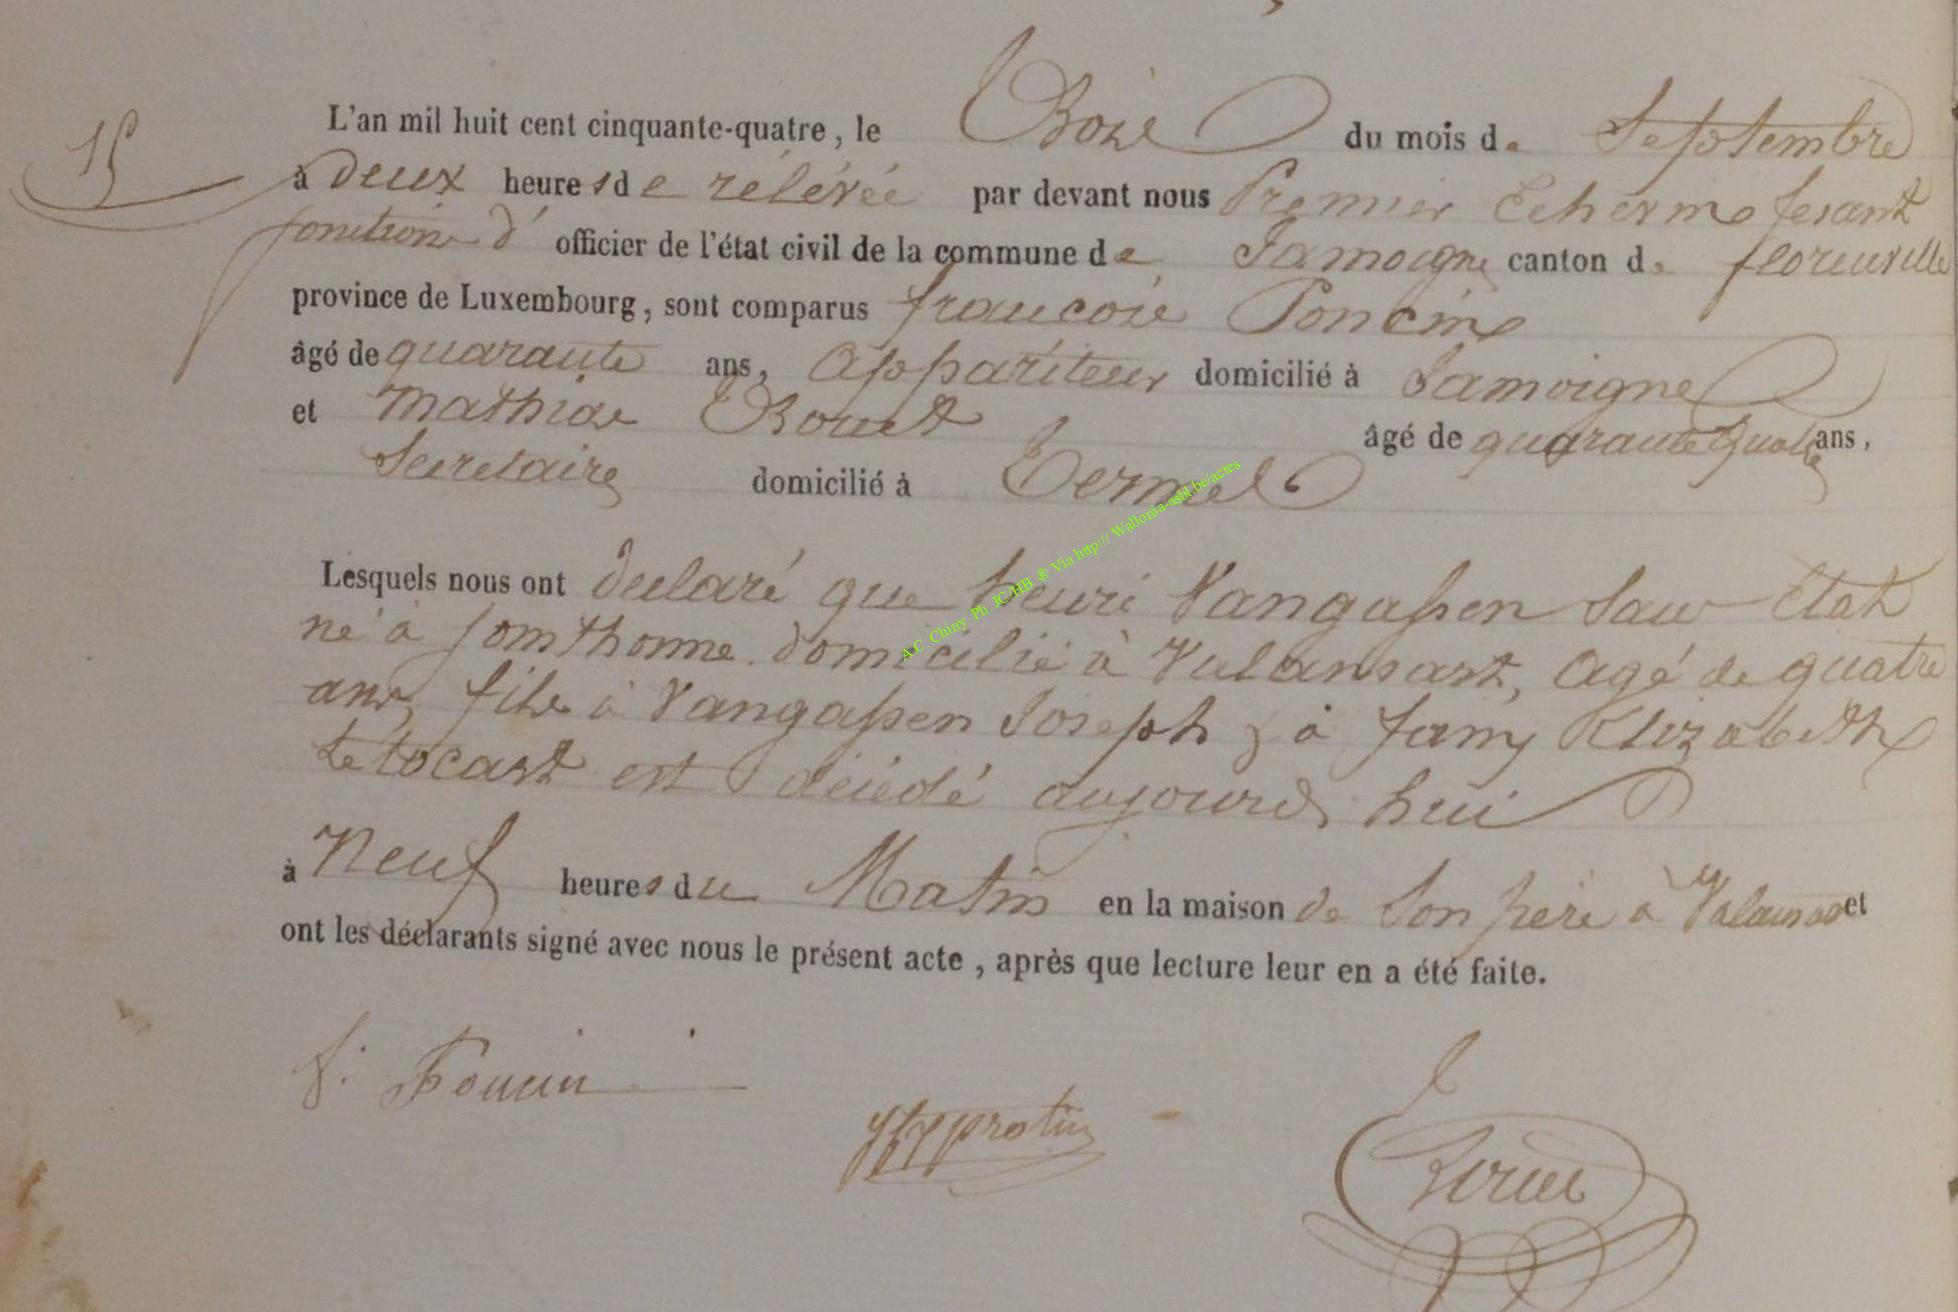 15
L'an mil huit cent cinquante-quatre, le Onze du mois de Septembre
à deux heures de rélévée par devant nous Premier Echevin fesant
fonction d' officier de l'état civil de la commune de Jamoigne canton de florenville
province de Luxembourg, sont comparus francois Poncin
âgé de quarante ans, appariteur domicilié à Jamoigne
et Mathias âgé de quarante quatre ans,
Secretaire domicilié à Termes
Lesquels nous ont declaré que henri Vangassen Sans Etat
né à domicilié à Valansart, agé de quatre
ans, fils à Vangassen Joseph & à fany Elizabeth
Letocart est décédé aujourd'hui
à Neuf heures du Matin en la maison de Son père à Valansart et
ont les déclarants signé avec nous le présent acte, après que lecture leur en a été faite.
f. Poncin
A.C. Chiny Ph JC/HB ® Via http:// Wallonia-asbl.be/actes